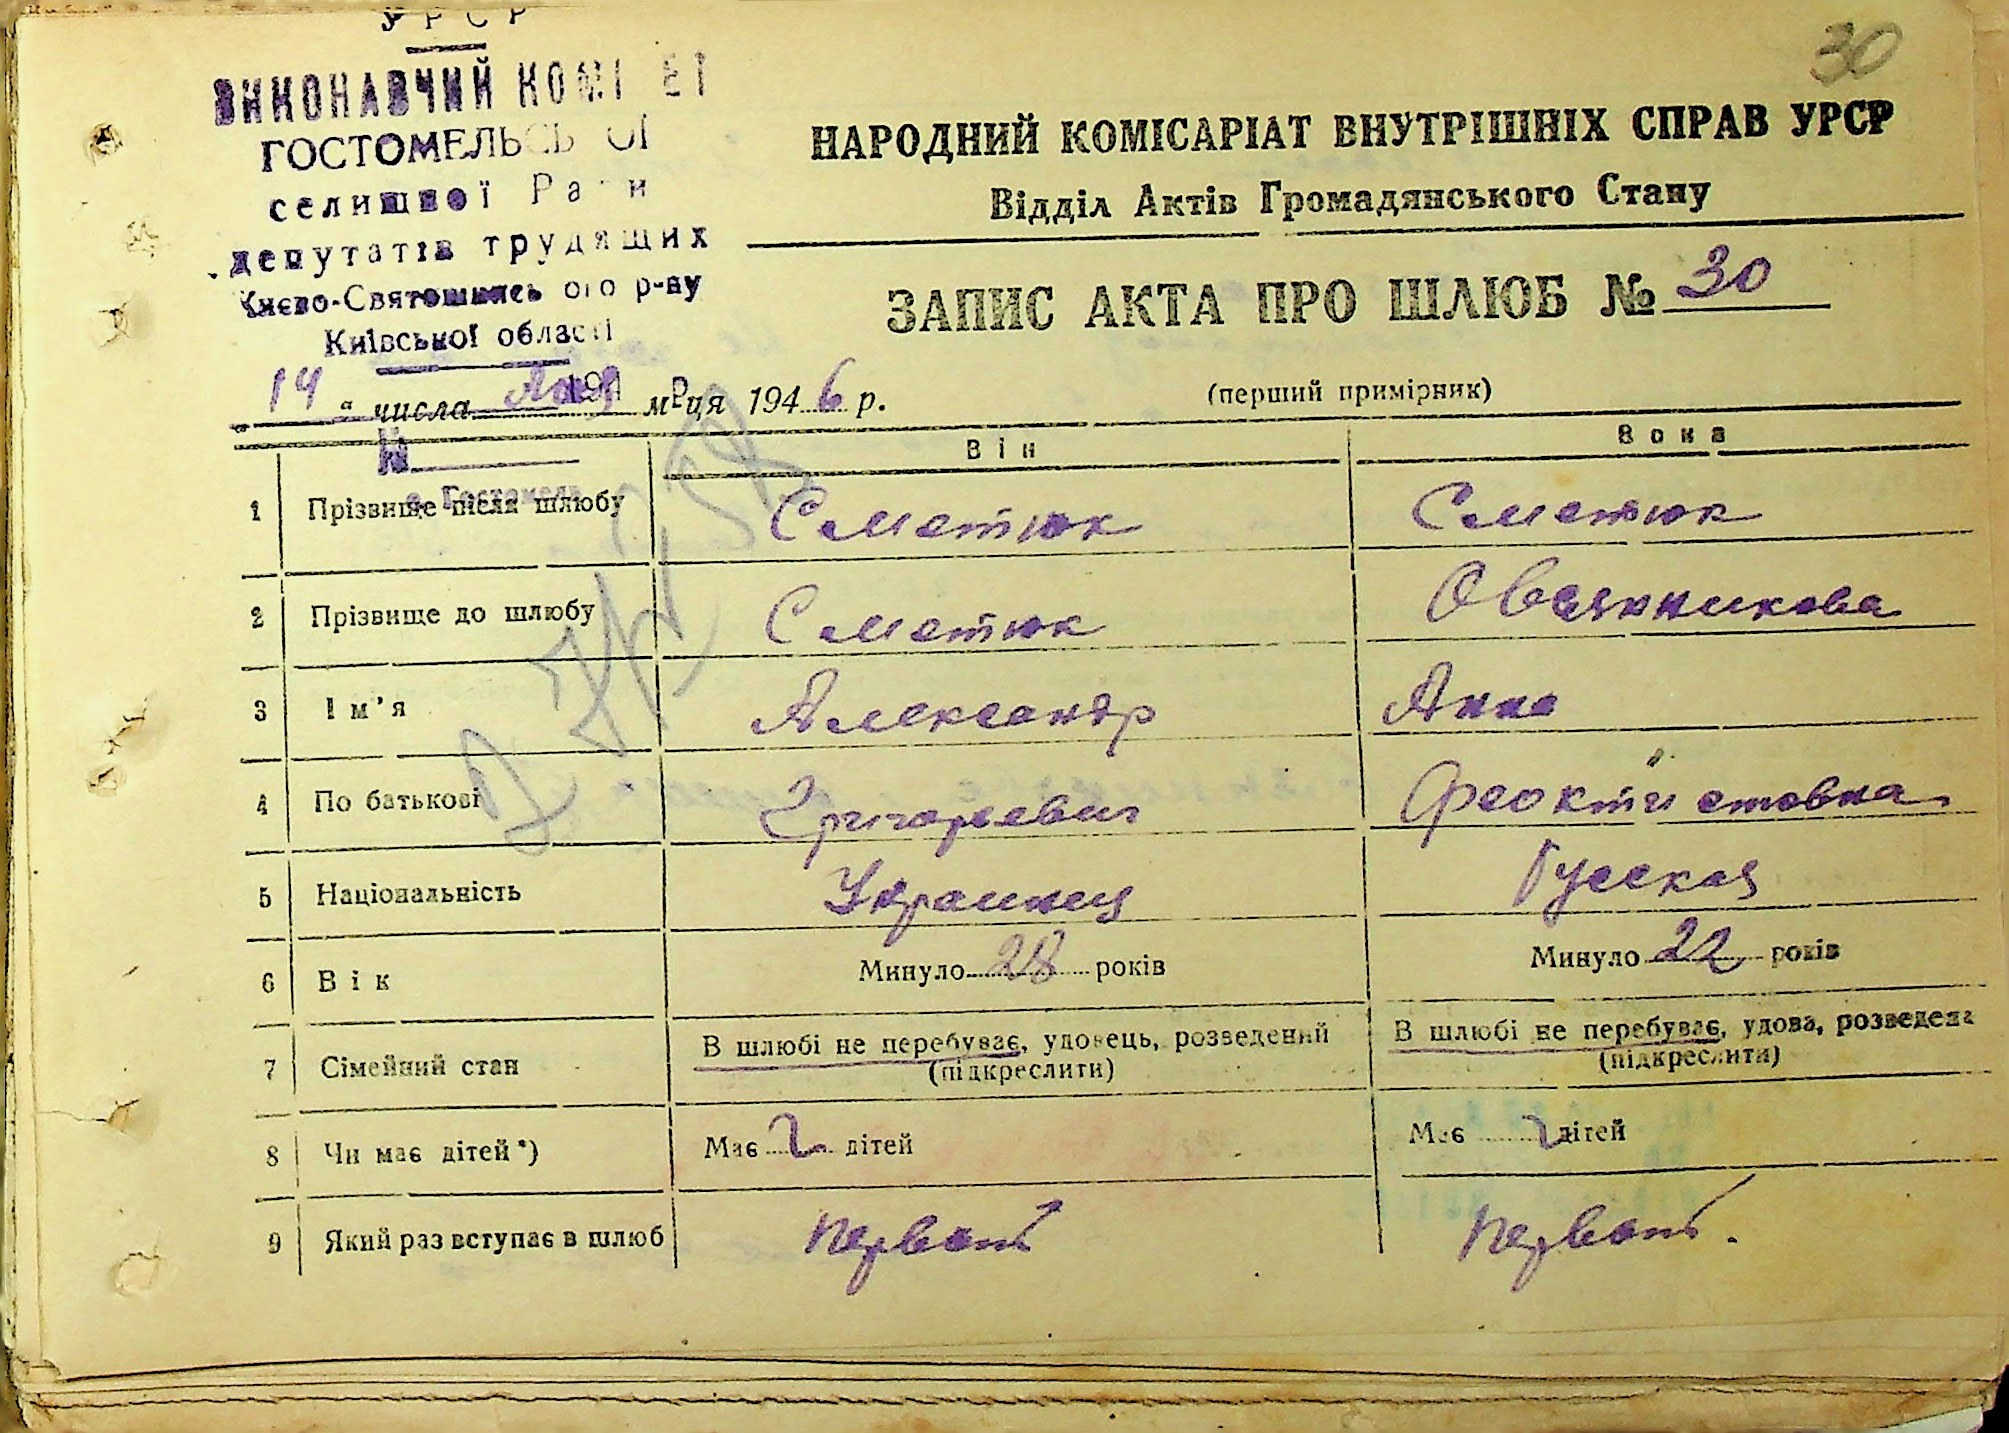 УРСР
ВИКОНАВЧИЙ КОМІТЕТ
ГОСТОМЕЛЬСЬКОЇ
селищної Ради
депутатів трудящих
Києво-Святошинського р-ну
Київської області
30
НАРОДНИЙ КОМІСАРІАТ ВНУТРІШНІХ СПРАВ УРСР
Відділ Актів Громадянського Стану
ЗАПИС АКТА ПРО ШЛЮБ № 30
(перший примірник)
14 " числа мая м-ця 1946 р.
№
с. Гостомель
Він Вона
1 Прізвище після шлюбу Сметюк Сметюк
2 Прізвище до шлюбу Сметюк Овсянникова
3 Ім'я Александр Анна
4 По батькові Григорьевич Феоктистовна
5 Національність Украинец Русская
6 Вік Минуло 28 років Минуло 22 років
7 Сімейний стан В шлюбі не перебуває, удовець, розведений В шлюбі не перебуває, удова, розведена
(підкреслити) (підкреслити)
8 Чи має дітей *) Має 2 дітей Має 2 дітей
9 Який раз вступає в шлюб Первый Первый.